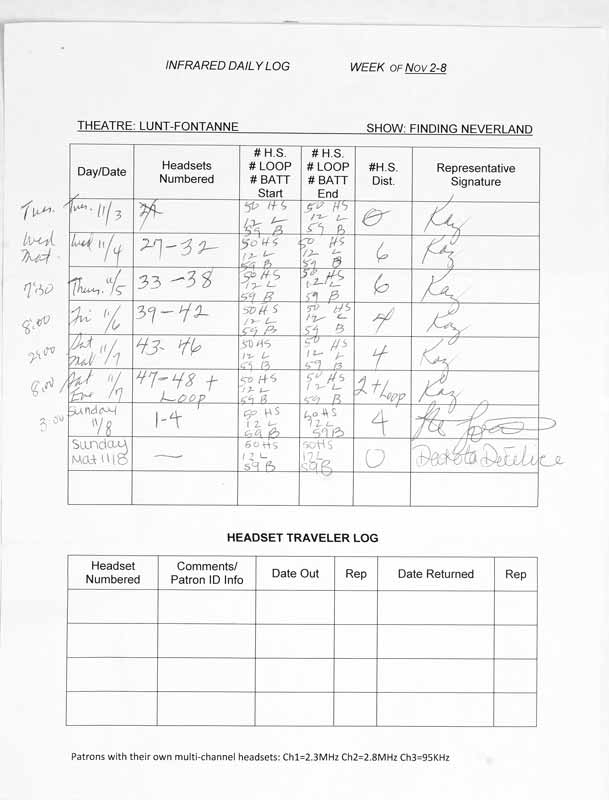 INFRARED DAILY LOG WEEK OF NOV 2-8
THEATRE: LUNT-FONTANNE SHOW: FINDING NEVERLAND
Day/Date Headsets Numbered # H.S. # LOOP # BATT Start # H.S. # LOOP # BATT End #H.S. Dist. Representative Signature
Tues. Tues. 11/3 50 HS 12 L 59 B 50 HS 12 L 59 B 0 Kaz
Wed Mat. Wed 11/4 27-32 50 HS 12 L 59 B 50 HS 12 L 59 B 6 Kaz
7:30 Thurs. 11/5 33-38 50 HS 12 L 59 B 50 HS 12 L 59 B 6 Kaz
8:00 Fri 11/6 39-42 50 HS 12 L 59 B 50 HS 12 L 59 B 4 Kaz
2:00 Sat Mat 11/7 43-46 50 HS 12 L 59 B 50 HS 12 L 59 B 4 Kaz
8:00 Sat Eve 11/7 47-48 + LOOP 50 HS 12 L 59 B 50 HS 12 L 59 B 2 + Loop Kaz
3:00 Sunday 11/8 1-4 50 HS 12 L 59 B 50 HS 12 L 59 B 4
Sunday Mat 11/8 — 50 HS 12 L 59 B 50 HS 12 L 59 B 0 Dakota
HEADSET TRAVELER LOG
Headset Numbered Comments/ Patron ID Info Date Out Rep Date Returned Rep
Patrons with their own multi-channel headsets: Ch1=2.3MHz Ch2=2.8MHz Ch3=95KHz